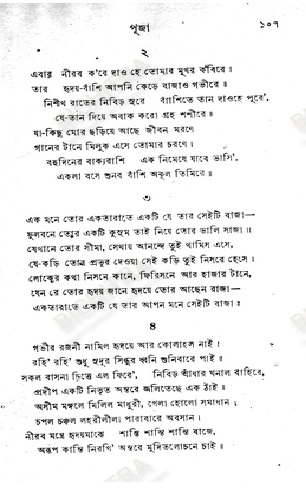 পূজা
১০৭
২
এবার নীরব ক'রে দাও হে তোমার মুখর কবিরে॥
তার হৃদয়-বাঁশি আপনি কেড়ে বাজাও গভীরে॥
নিশীথ রাতের নিবিড় সুরে বাঁশিতে তান দাওহে পূরে',
যে-তান দিয়ে অবাক করো গ্রহ শশীরে॥
যা-কিছু মোর ছড়িয়ে আছে জীবন মরণে
গানের টানে মিলুক এসে তোমার চরণে।
বহুদিনের বাক্যরাশি এক নিমেষে যাবে ভাসি',
একলা বসে শুনব বাঁশি অকূল তিমিরে॥
৩
এক মনে তোর একতারাতে একটি যে তার সেইটি বাজা—
ফুলবনে তোর একটি কুসুম তাই নিয়ে তোর ডালি সাজা॥
যেখানে তোর সীমা, সেথায় আনন্দে তুই থামিস এসে,
যে-কড়ি তোর প্রভুর দেওয়া সেই কড়ি তুই নিসরে হেসে।
লোকের কথা নিসনে কানে, ফিরিসনে আর হাজার টানে,
যেন রে তোর হৃদয় জানে হৃদয়ে তোর আছেন রাজা—
একতারাতে একটি যে তার আপন মনে সেইটি বাজা॥
৪
গভীর রজনী নামিল হৃদয়ে আর কোলাহল নাই।
রহি' রহি' শুধু সুদূর সিন্ধুর ধ্বনি শুনিবারে পাই॥
সকল বাসনা চিত্তে এল ফিরে', নিবিড় আঁধার ঘনাল বাহিরে,
প্রদীপ একটি নিভৃত অন্তরে জ্বলিতেছে এক ঠাঁই॥
অসীম মঙ্গলে মিলিল মাধুরী, খেলা হোলো সমাধান;
চপল চঞ্চল লহরীলীলা পারাবারে অবসান।
নীরব মন্ত্রে হৃদয়মাঝে শান্তি শান্তি শান্তি বাজে,
অরূপ কান্তি নিরখি' অন্তরে মুদিতলোচনে চাই॥